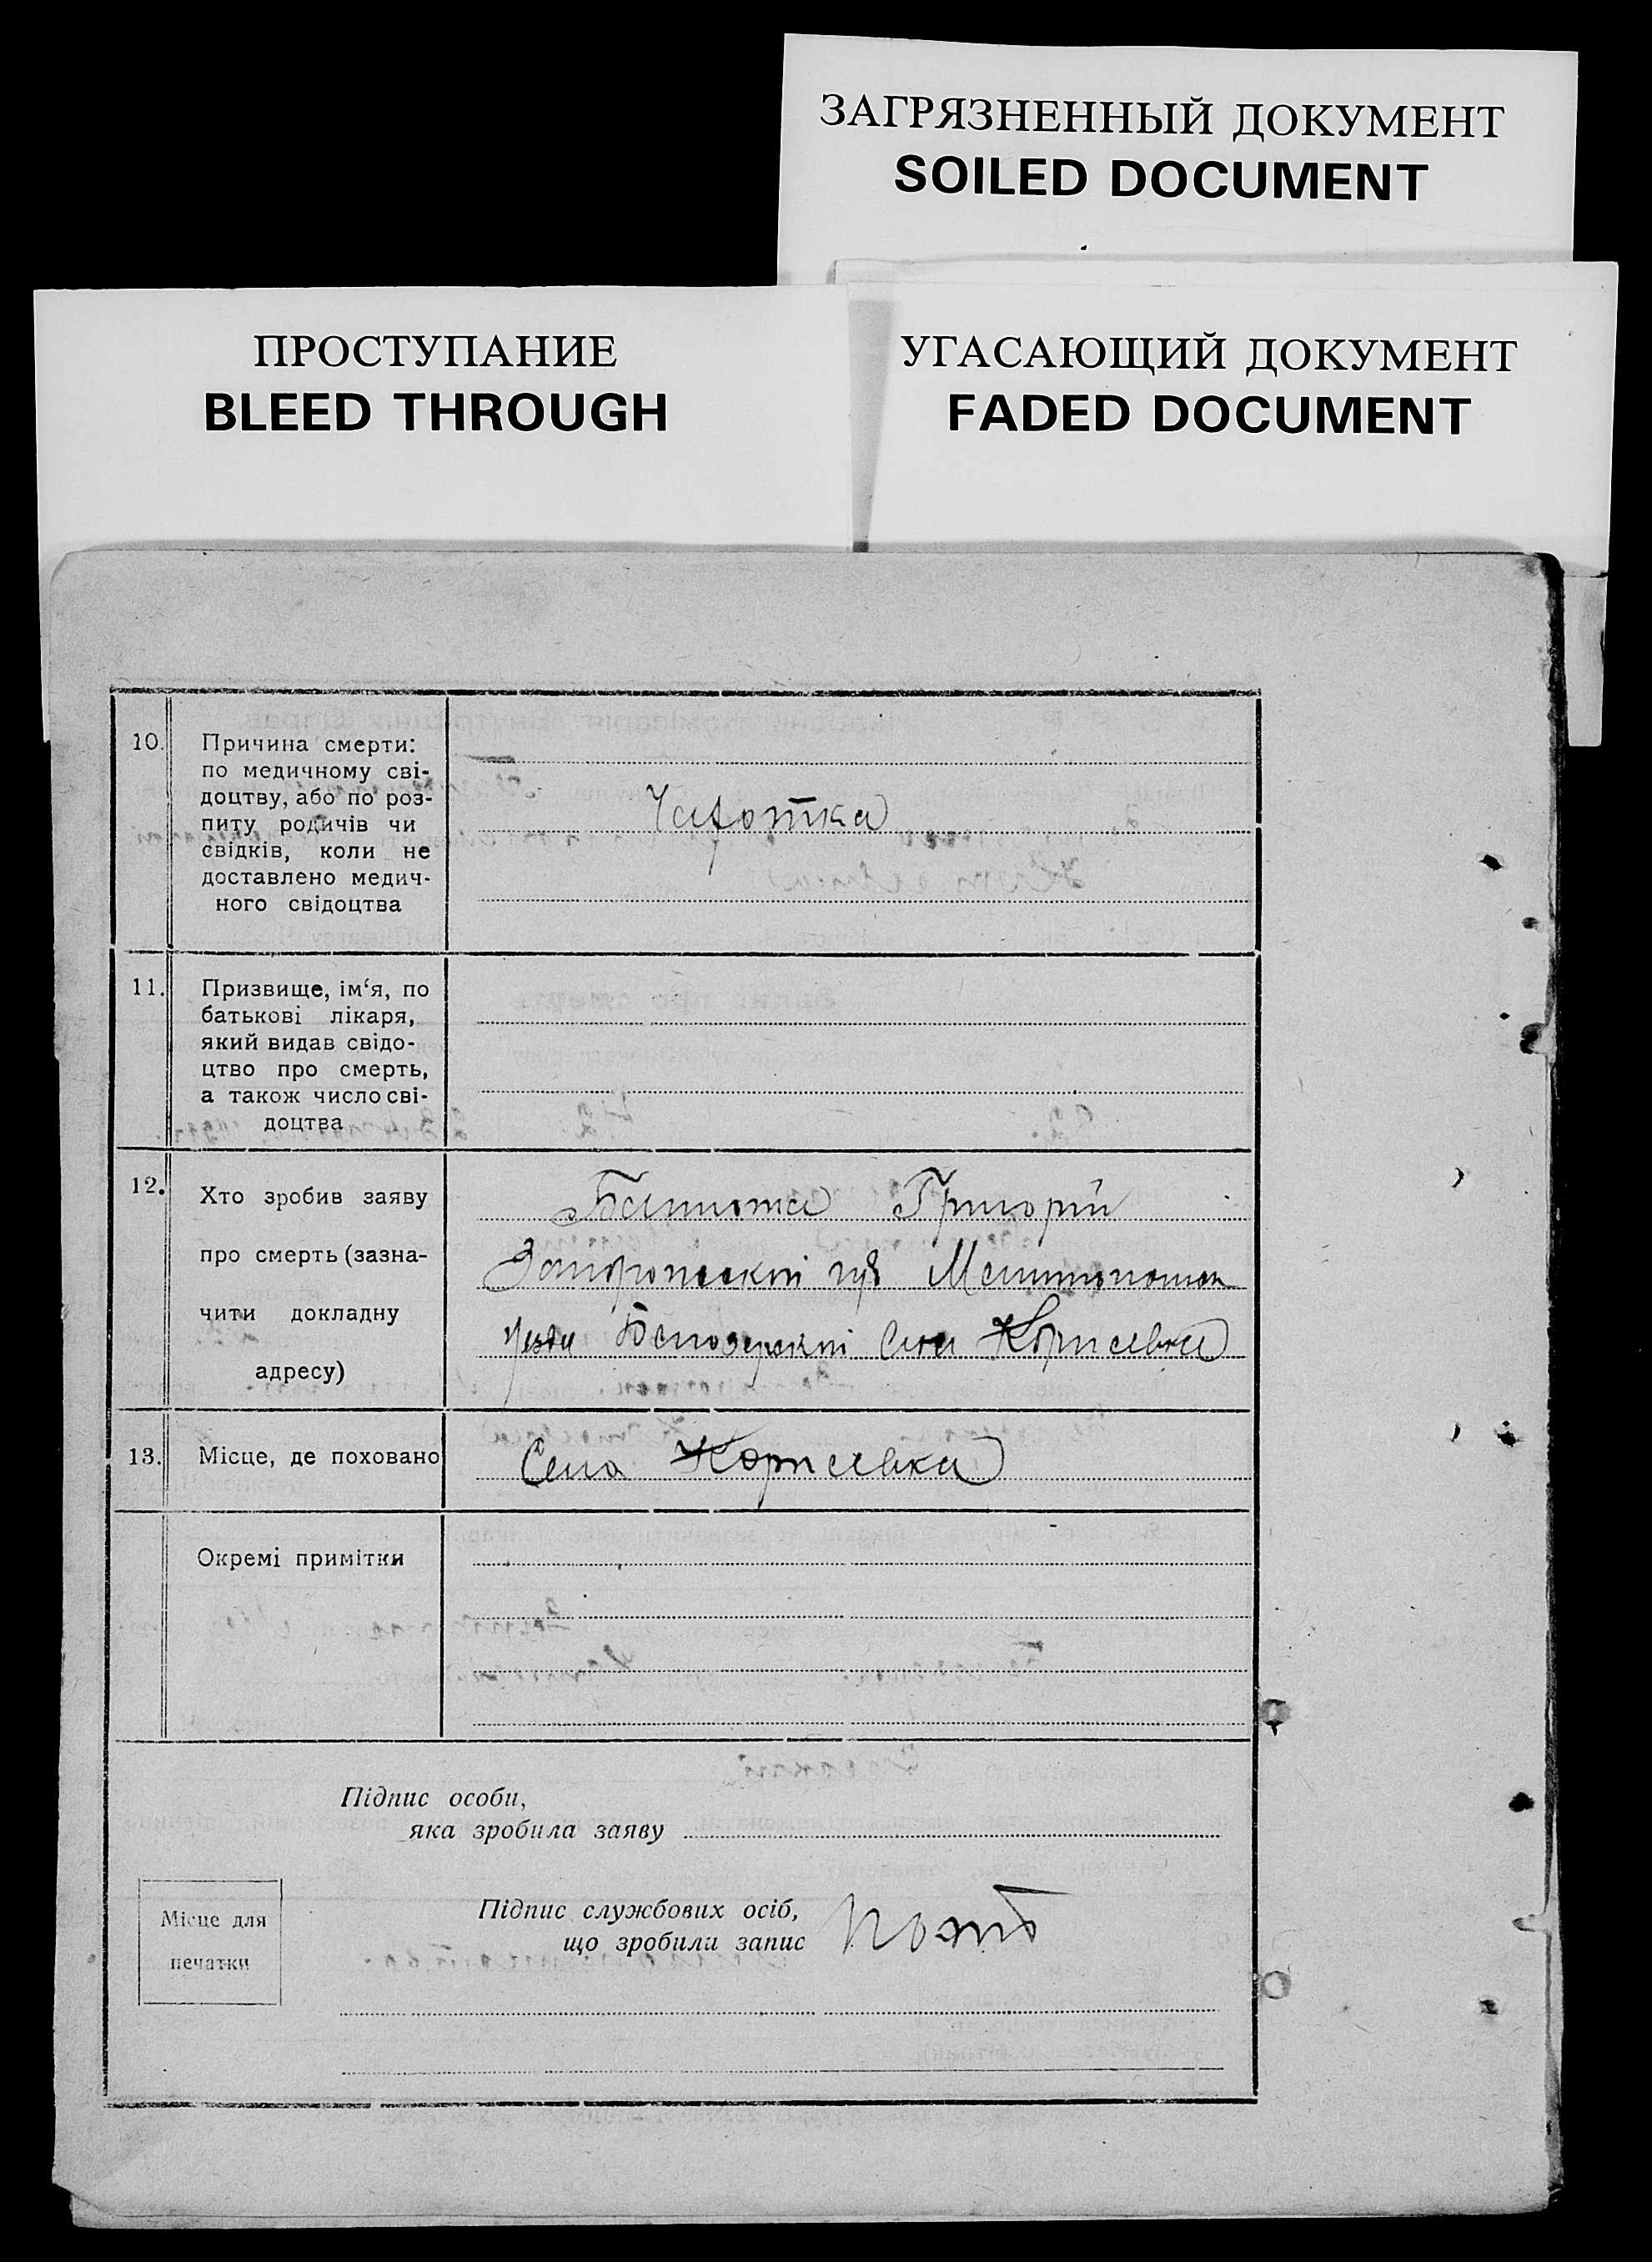 ЗАГРЯЗНЕННЫЙ ДОКУМЕНТ
SOILED DOCUMENT
ПРОСТУПАНИЕ
BLEED THROUGH
УГАСАЮЩИЙ ДОКУМЕНТ
FADED DOCUMENT
10. Причина смерти:
по медичному сві-
доцтву, або по роз-
питу родичів чи
свідків, коли не
доставлено медич-
ного свідоцтва
Чахотка
11. Призвище, ім‘я, по
батькові лікаря,
який видав свідо-
цтво про смерть,
а також число сві-
доцтва
12. Хто зробив заяву
про смерть (зазна-
чити докладну
адресу)
Григорій
губ
Села
13. Місце, де поховано
Село
Окремі примітки
Підпис особи,
яка зробила заяву
Місце для
печатки
Підпис службових осіб,
що зробили запис